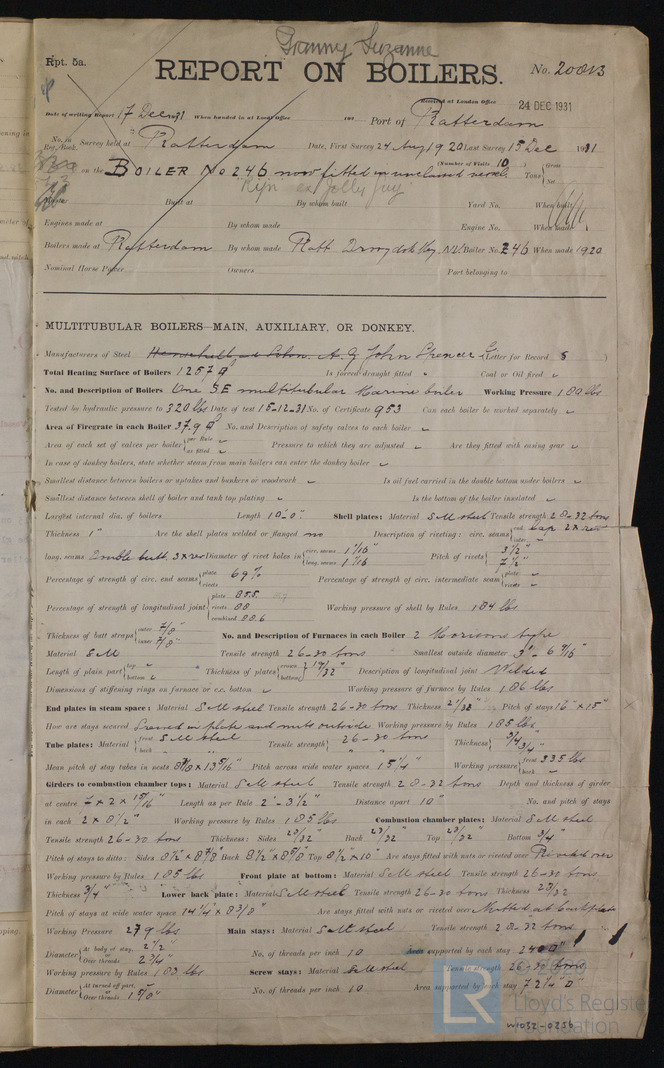 Granny Suzanne
Rpt. 5a.
REPORT ON BOILERS.
No. 20813
Received at London Office 24 DEC 1931
Date of writing Report 17 Dec 1931 When handed in at Local Office 192 Port of Rotterdam
No. in Reg. Book. Survey held at Rotterdam Date, First Survey 24 Aug 1920 Last Survey 15 Dec 1931
on the BOILER No 246 now fitted in unclassed vessel. (Number of Visits 10) Gross Tons Net
Ryn ex Jolly Guy
Master Built at By whom built Yard No. When built
Engines made at By whom made Engine No. When made
Boilers made at Rotterdam By whom made Rott Droogdok Mij. N.V. Boiler No. 246 When made 1920
Nominal Horse Power Owners Port belonging to
MULTITUBULAR BOILERS—MAIN, AUXILIARY, OR DONKEY.
Manufacturers of Steel John Spencer (Letter for Record S )
Total Heating Surface of Boilers 1257 Is forced draught fitted Coal or Oil fired
No. and Description of Boilers One SE multitubular Marine boiler Working Pressure 180 lbs
Tested by hydraulic pressure to 320 lbs Date of test 15-12-31 No. of Certificate 953 Can each boiler be worked separately
Area of Firegrate in each Boiler 37.9 No. and Description of safety valves to each boiler
Area of each set of valves per boiler per Rule as fitted Pressure to which they are adjusted Are they fitted with easing gear
In case of donkey boilers, state whether steam from main boilers can enter the donkey boiler
Smallest distance between boilers or uptakes and bunkers or woodwork Is oil fuel carried in the double bottom under boilers
Smallest distance between shell of boiler and tank top plating Is the bottom of the boiler insulated
Largest internal dia. of boilers Length 10'-0" Shell plates: Material S.M steel Tensile strength 28-32 tons
Thickness 1" Are the shell plates welded or flanged no Description of riveting: circ. seams end lap 2 x riv inter.
long. seams Double butt. 3 x riv Diameter of rivet holes in circ. seams 1 1/16" long. seams 1 1/16 Pitch of rivets 3 1/2" 7 1/2"
Percentage of strength of circ. end seams plate 69% rivets Percentage of strength of circ. intermediate seam plate rivets
Percentage of strength of longitudinal joint plate 85.5 rivets 88 combined 88.6 Working pressure of shell by Rules 184 lbs
Thickness of butt straps outer 7/8" inner 7/8" No. and Description of Furnaces in each Boiler 2 Morisons type
Material S.M Tensile strength 26-30 tons Smallest outside diameter 3'-6 9/16"
Length of plain part top bottom Thickness of plates crown bottom 19/32" Description of longitudinal joint Welded
Dimensions of stiffening rings on furnace or c.c. bottom Working pressure of furnace by Rules 186 lbs
End plates in steam space: Material S.M steel Tensile strength 26-30 tons Thickness 27/32" Pitch of stays 16" x 15"
How are stays secured Screwed in plate and nuts outside Working pressure by Rules 185 lbs
Tube plates: Material front back S.M steel Tensile strength 26-30 tons Thickness 3/4 3/4"
Mean pitch of stay tubes in nests Pitch across wide water spaces 15 1/4" Working pressure front 335 lbs back
Girders to combustion chamber tops: Material S.M steel Tensile strength 28-32 tons Depth and thickness of girder
at centre 7 x 2 x 15/16" Length as per Rule 2'-3 1/2" Distance apart 10" No. and pitch of stays
in each 2 x 8 1/2" Working pressure by Rules 185 lbs Combustion chamber plates: Material S.M steel
Tensile strength 26-30 tons Thickness: Sides 23/32" Back 23/32" Top 23/32" Bottom 3/4"
Pitch of stays to ditto: Sides 8 1/2" x 8 7/8" Back 8 1/2" x 8 5/8" Top 8 1/2" x 10" Are stays fitted with nuts or riveted over Riveted over
Working pressure by Rules 185 lbs Front plate at bottom: Material S.M steel Tensile strength 26-30 tons
Thickness 3/4" Lower back plate: Material S.M steel Tensile strength 26-30 tons Thickness 23/32
Pitch of stays at wide water space 14 1/4" x 8 3/8" Are stays fitted with nuts or riveted over Nutted at both
Working Pressure 279 lbs Main stays: Material S.M steel Tensile strength 28-32 tons
Diameter At body of stay, or Over threads 2 1/2" 2 3/4" No. of threads per inch 10 Area supported by each stay 240
Working pressure by Rules 183 lbs Screw stays: Material S.M steel Tensile strength 26-30 tons
Diameter At turned off part, or Over threads 1 5/8" No. of threads per inch 10 Area supported by each stay 72 1/4"
LR
Lloyd's Register
Foundation
W1032-0256